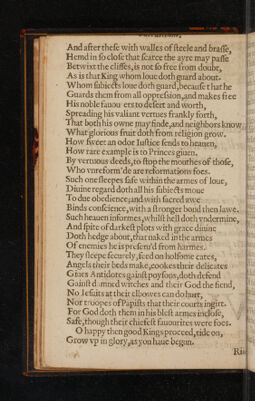 And after these with walles of steele and brasse,
Hemd in so close that scarce the ayre may passe
Betwixt the cliffes, is not so free from doubt,
As is that King whom loue doth guard about.
Whom subiects loue doth guard, because that he
Guards them from all oppression, and makes free
His noble fauourers to desert and worth,
Spreading his valiant vertues frankly forth,
That both his owne may finde, and neighbors know
What glorious fruit doth from religion grow.
How sweet an odor Iustice sends to heauen,
How rare example is to Princes giuen,
By vertuous deeds, to stop the mouthes of those,
Who vnreform'd are reformations foes.
Such one sleepes safe within the armes of loue,
Diuine regard doth all his subiects moue
To due obedience; and with sacred awe
Binds conscience, with a stronger bond then lawe.
Such heauen informes, whilst hell doth vndermine,
And spite of darkest plots with grace diuine
Doth hedge about, that naked in the armes
Of enemies he is preseru'd from harmes.
They sleepe securely, feed on holsome cates,
Angels their beds make, cookes their delicates
Giues Antidotes gainst poysons, doth defend
Gainst damned witches and their God the fiend,
No Iesuits at their elbowes can do hurt,
Nor troopes of Papists that their courts ingirt.
For God doth them in his blest armes inclose,
Safe, though their chiefest fauourites were foes.
O happy then good Kings proceed, tide on,
Grow vp in glory, as you haue begun.